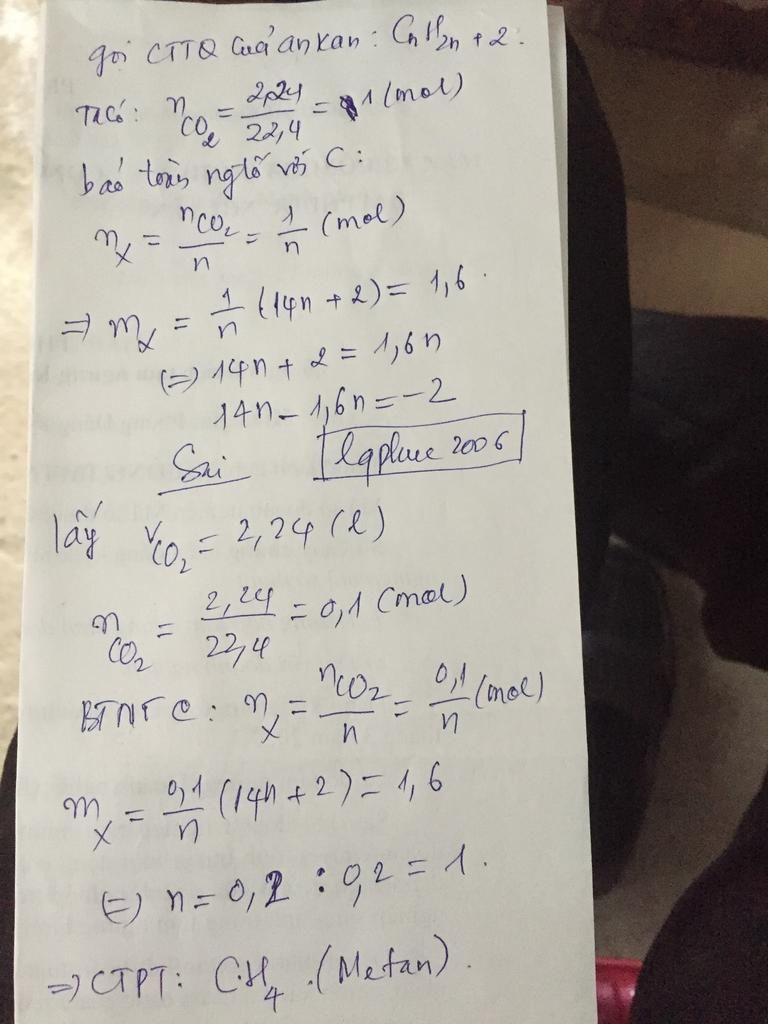 gọi CTTQ của ankan: CnH2n+2.
Ta có: nCO2 = 2,24/22,4 = 1 (mol)
bảo toàn ngtố với C:
nX = nCO2/n = 1/n (mol)
=> mX = 1/n (14n + 2) = 1,6.
(=) 14n + 2 = 1,6n
14n - 1,6n = -2
Sai lqphuc 2006
lấy VCO2 = 2,24 (l)
nCO2 = 2,24/22,4 = 0,1 (mol)
BTNT C: nX = nCO2/n = 0,1/n (mol)
mX = 0,1/n (14n + 2) = 1,6
(=) n = 0,2 : 0,2 = 1.
=> CTPT: CH4. (Metan).